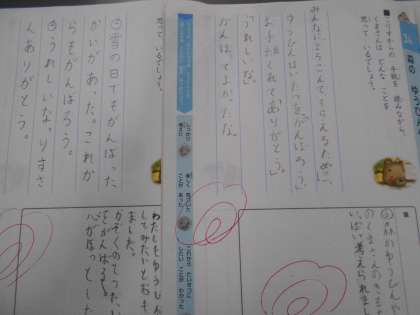 森の ゆうび
■こりすからの 手紙を 読みながら、
くまさんは どんな ことを
思って いるでしょう。
みんなによろこんでもらえるために、
ゆうびんはいたつをがんばろう。」
お手紙くれてありがとう。」
「うれしいな。
がんばってよかったな。
森のゆうびんや
のくまさんのきもち
考えられまし
しっかり
考えた
新しく 気づいた
ことが あった
これから たいせつに
したい ことが わかった
思って いるでしょう。
②雪の日でもがんばった
かいがあった。これか
らもがんばろう。
③うれしいな。りすさ
んありがとう。
わたしもゆうびん
してみたいとおも
ました。
かぞくのてつだい